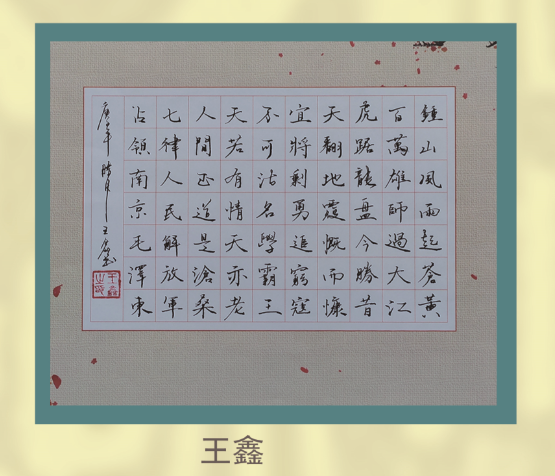 鍾山風雨起蒼黃
百萬雄師過大江
虎踞龍盤今勝昔
天翻地覆慨而慷
宜將剩勇追窮寇
不可沽名學霸王
天若有情天亦老
人間正道是滄桑
七律人民解放軍
佔領南京毛澤東
王鑫